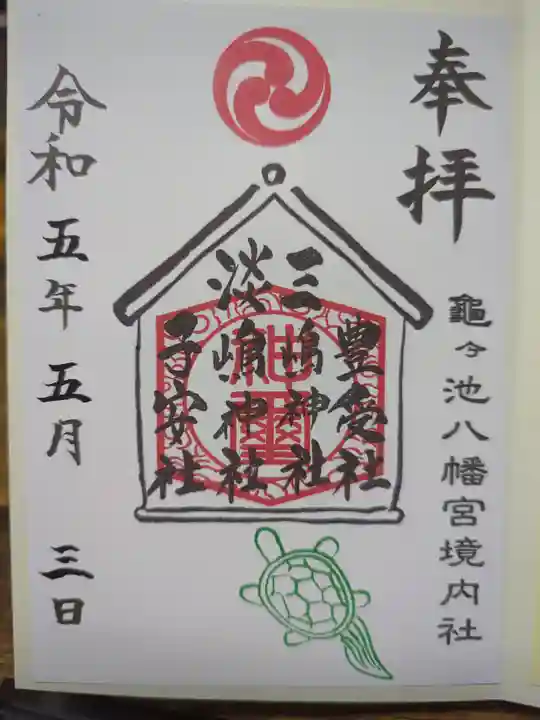 奉拝
龜ヶ池八幡宮境内社
豊受社
三嶋神社
淡嶋神社
子安社
令和五年五月三日